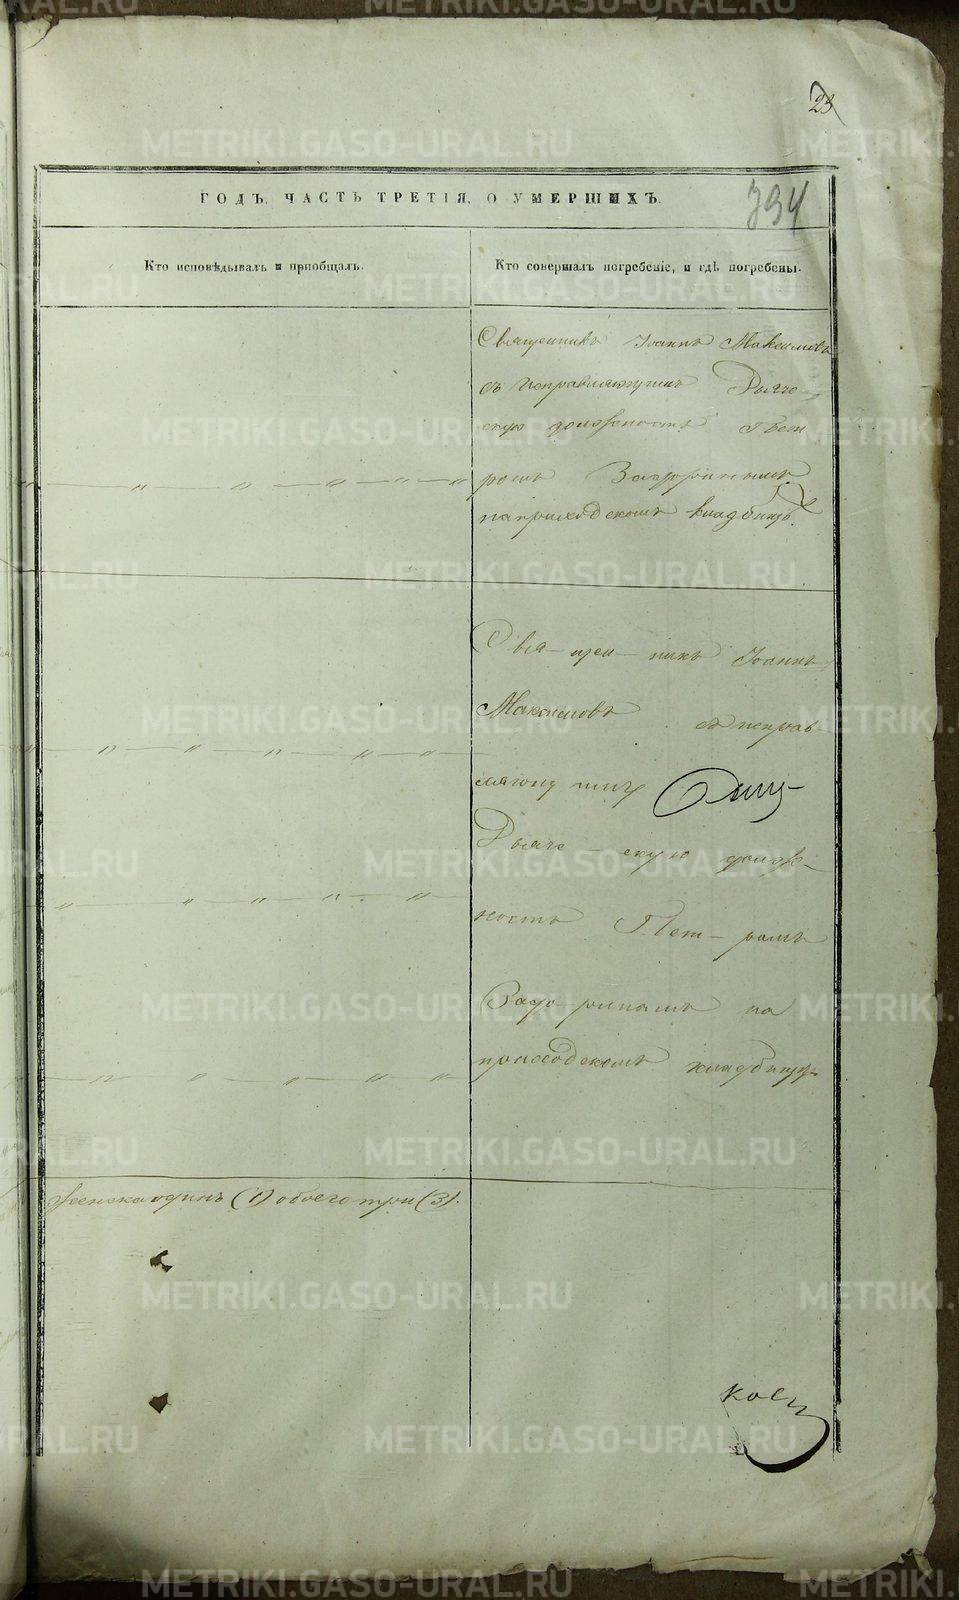 23
794
ГОДЪ, ЧАСТЬ ТРЕТІЯ, О УМЕРШИХЪ.
Кто исповѣдывалъ и пріобщалъ.
Кто совершалъ погребеніе, и гдѣ погребены.
Священникъ Іоаннъ Максимовъ
съ исправляющимъ Дьяче-
скую должность Пет
ромъ
на приходскомъ кладбищѣ.
Свя-щен-никъ Іоаннъ
Максимовъ съ исправ
ляющимъ
Дьяче-скую долж-
ность Пет-ромъ
на
приходскомъ кладбищѣ
женска одинъ (1) обоего три (3).
METRIKI.GASO-URAL.RU